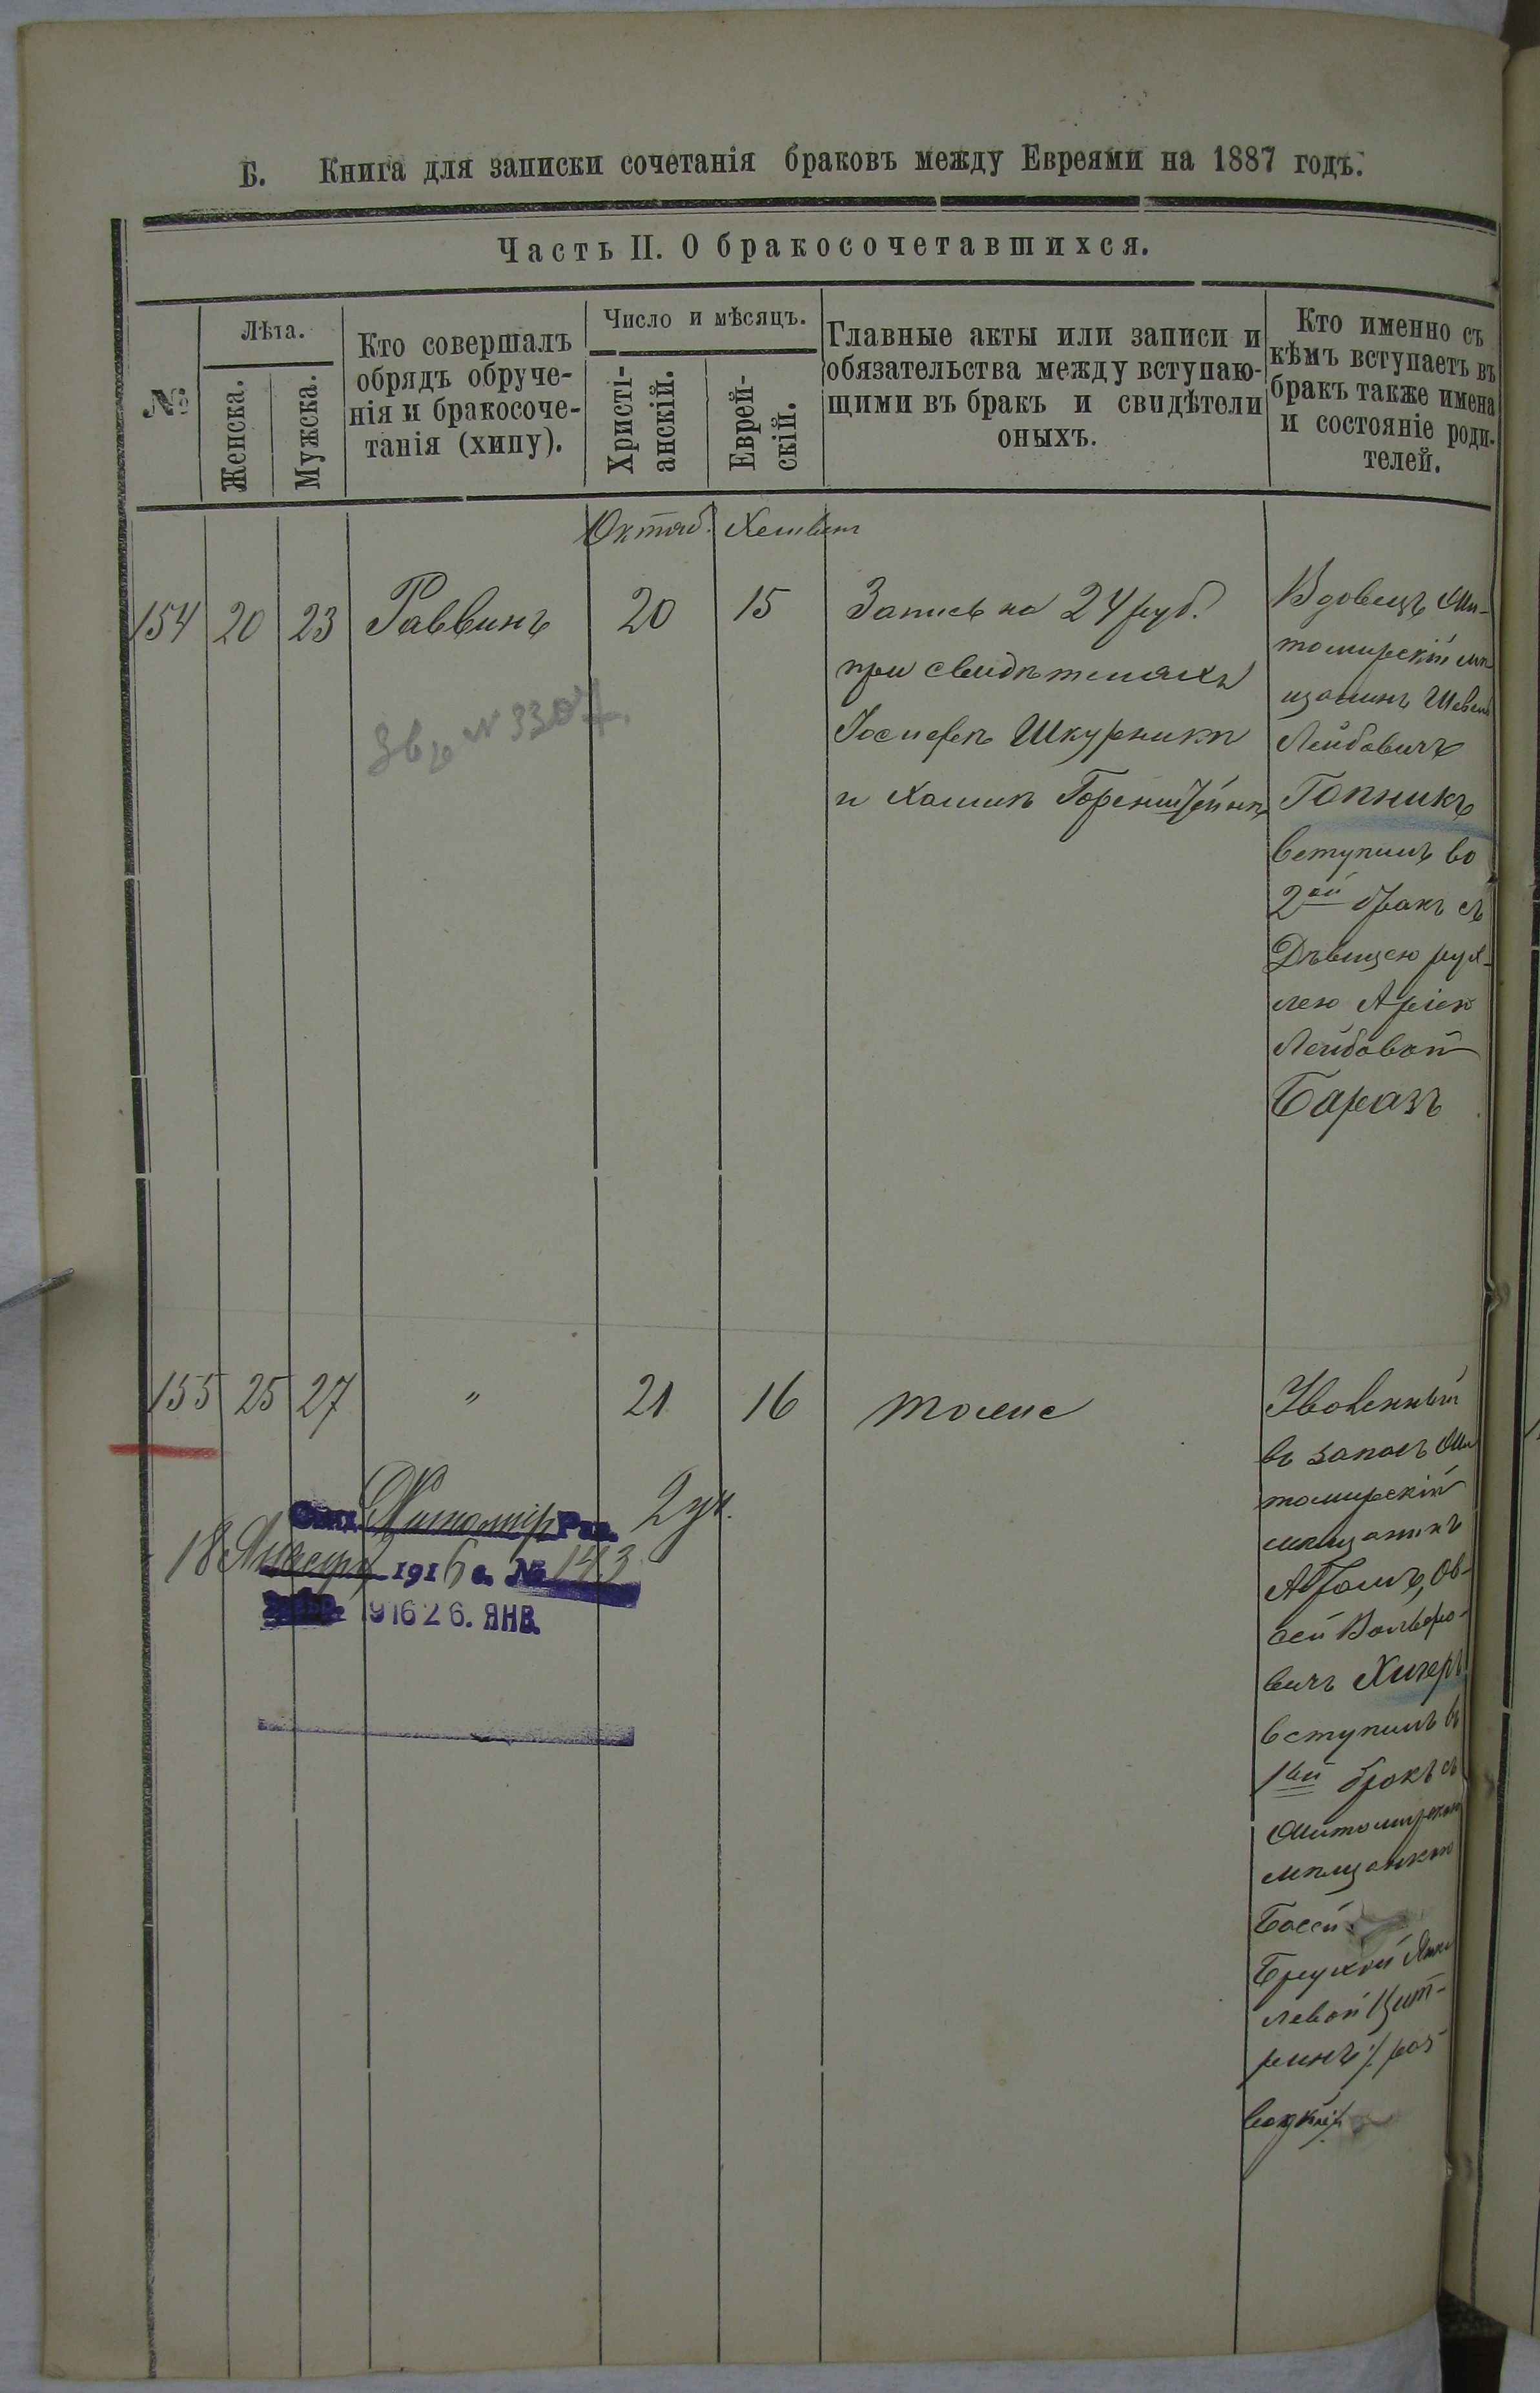 Б. Книга для записки сочетанія браковъ между Евреями на 1887 годъ.
Часть II. О бракосочетавшихся.
№
Лѣта.
Женска.
Мужска.
Кто совершалъ
обрядъ обруче-
нія и бракосоче-
танія (хипу).
Число и мѣсяцъ.
Христі-
анскій.
Еврей-
скій.
Главные акты или записи и
обязательства между вступаю-
щими въ бракъ и свидѣтели
оныхъ.
Кто именно съ
кѣмъ вступаетъ въ
бракъ также имена
и состояніе роди-
телей.
Октяб. Хешвен
154 20 23 Раввинъ 20 15
Запись на 24 руб.
при свидѣтеляхъ
Іосифѣ Шкурникѣ
и Хаимѣ Горенштейнѣ
Вдовецъ Жи-
томирскій мѣ
щанинъ Шевель
Лейбовичъ
Гопникъ
вступилъ во
2ой бракъ съ
Дѣвицею рух-
лею Аріею
Лейбовой
Баразъ
№ 3307
155 25 27 " 21 16 тоже
Уволенный
въ запасъ Жи
томирскій
мѣщанинъ
Абрамъ, Ов-
сей Вольфо-
вичъ Хигеръ
вступилъ въ
1ый бракъ съ
Житомирскою
мѣщанкою
Басей
Брухой Янке
левой Цит-
ринъ /: раз
водкой :/
Житомір Рав. 2 эк.
18 Января 1916 г. № 143
1916 26. ЯНВ.